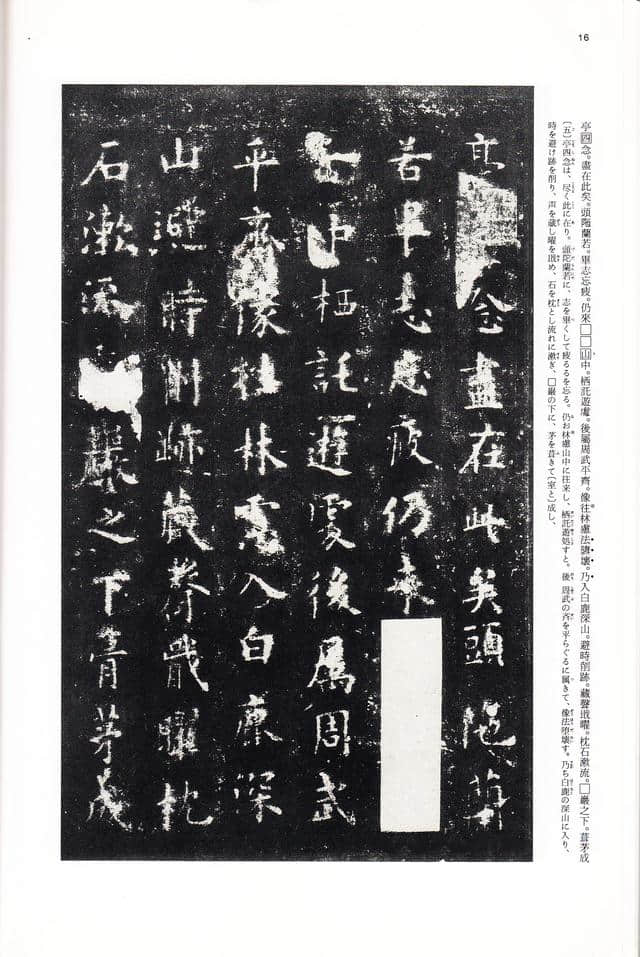 16
亭四念。盡在此矣。頭陁蘭若。畢志忘疲。仍來□□山中。栖託遊處。後屬周武平齊。像往林慮法隳壊。乃入白鹿深山。避時削跡。藏聲戢曜。枕石漱流。□巖之下。葺茅成
〔五〕亭四念は、尽く此に在り。頭陀蘭若に、志を畢くして疲るるを忘る。仍お林慮山中に往来し、栖託遊処すと。後 周武の斉を平らぐるに属きて、像法堕壊す。乃ち白鹿の深山に入り、
時を避け跡を削り、声を蔵し曜を戢め、石を枕とし流れに漱ぎ、□巖の下に、茅を葺きて〔室と〕成し、
亭念盡在此矣頭陁蘭
若畢志忘疲仍来
山中栖託遊處後属周武
平齊像往林慮入白鹿深
山避時削跡蔵聲戢曜枕
石漱流巖之下葺茅成